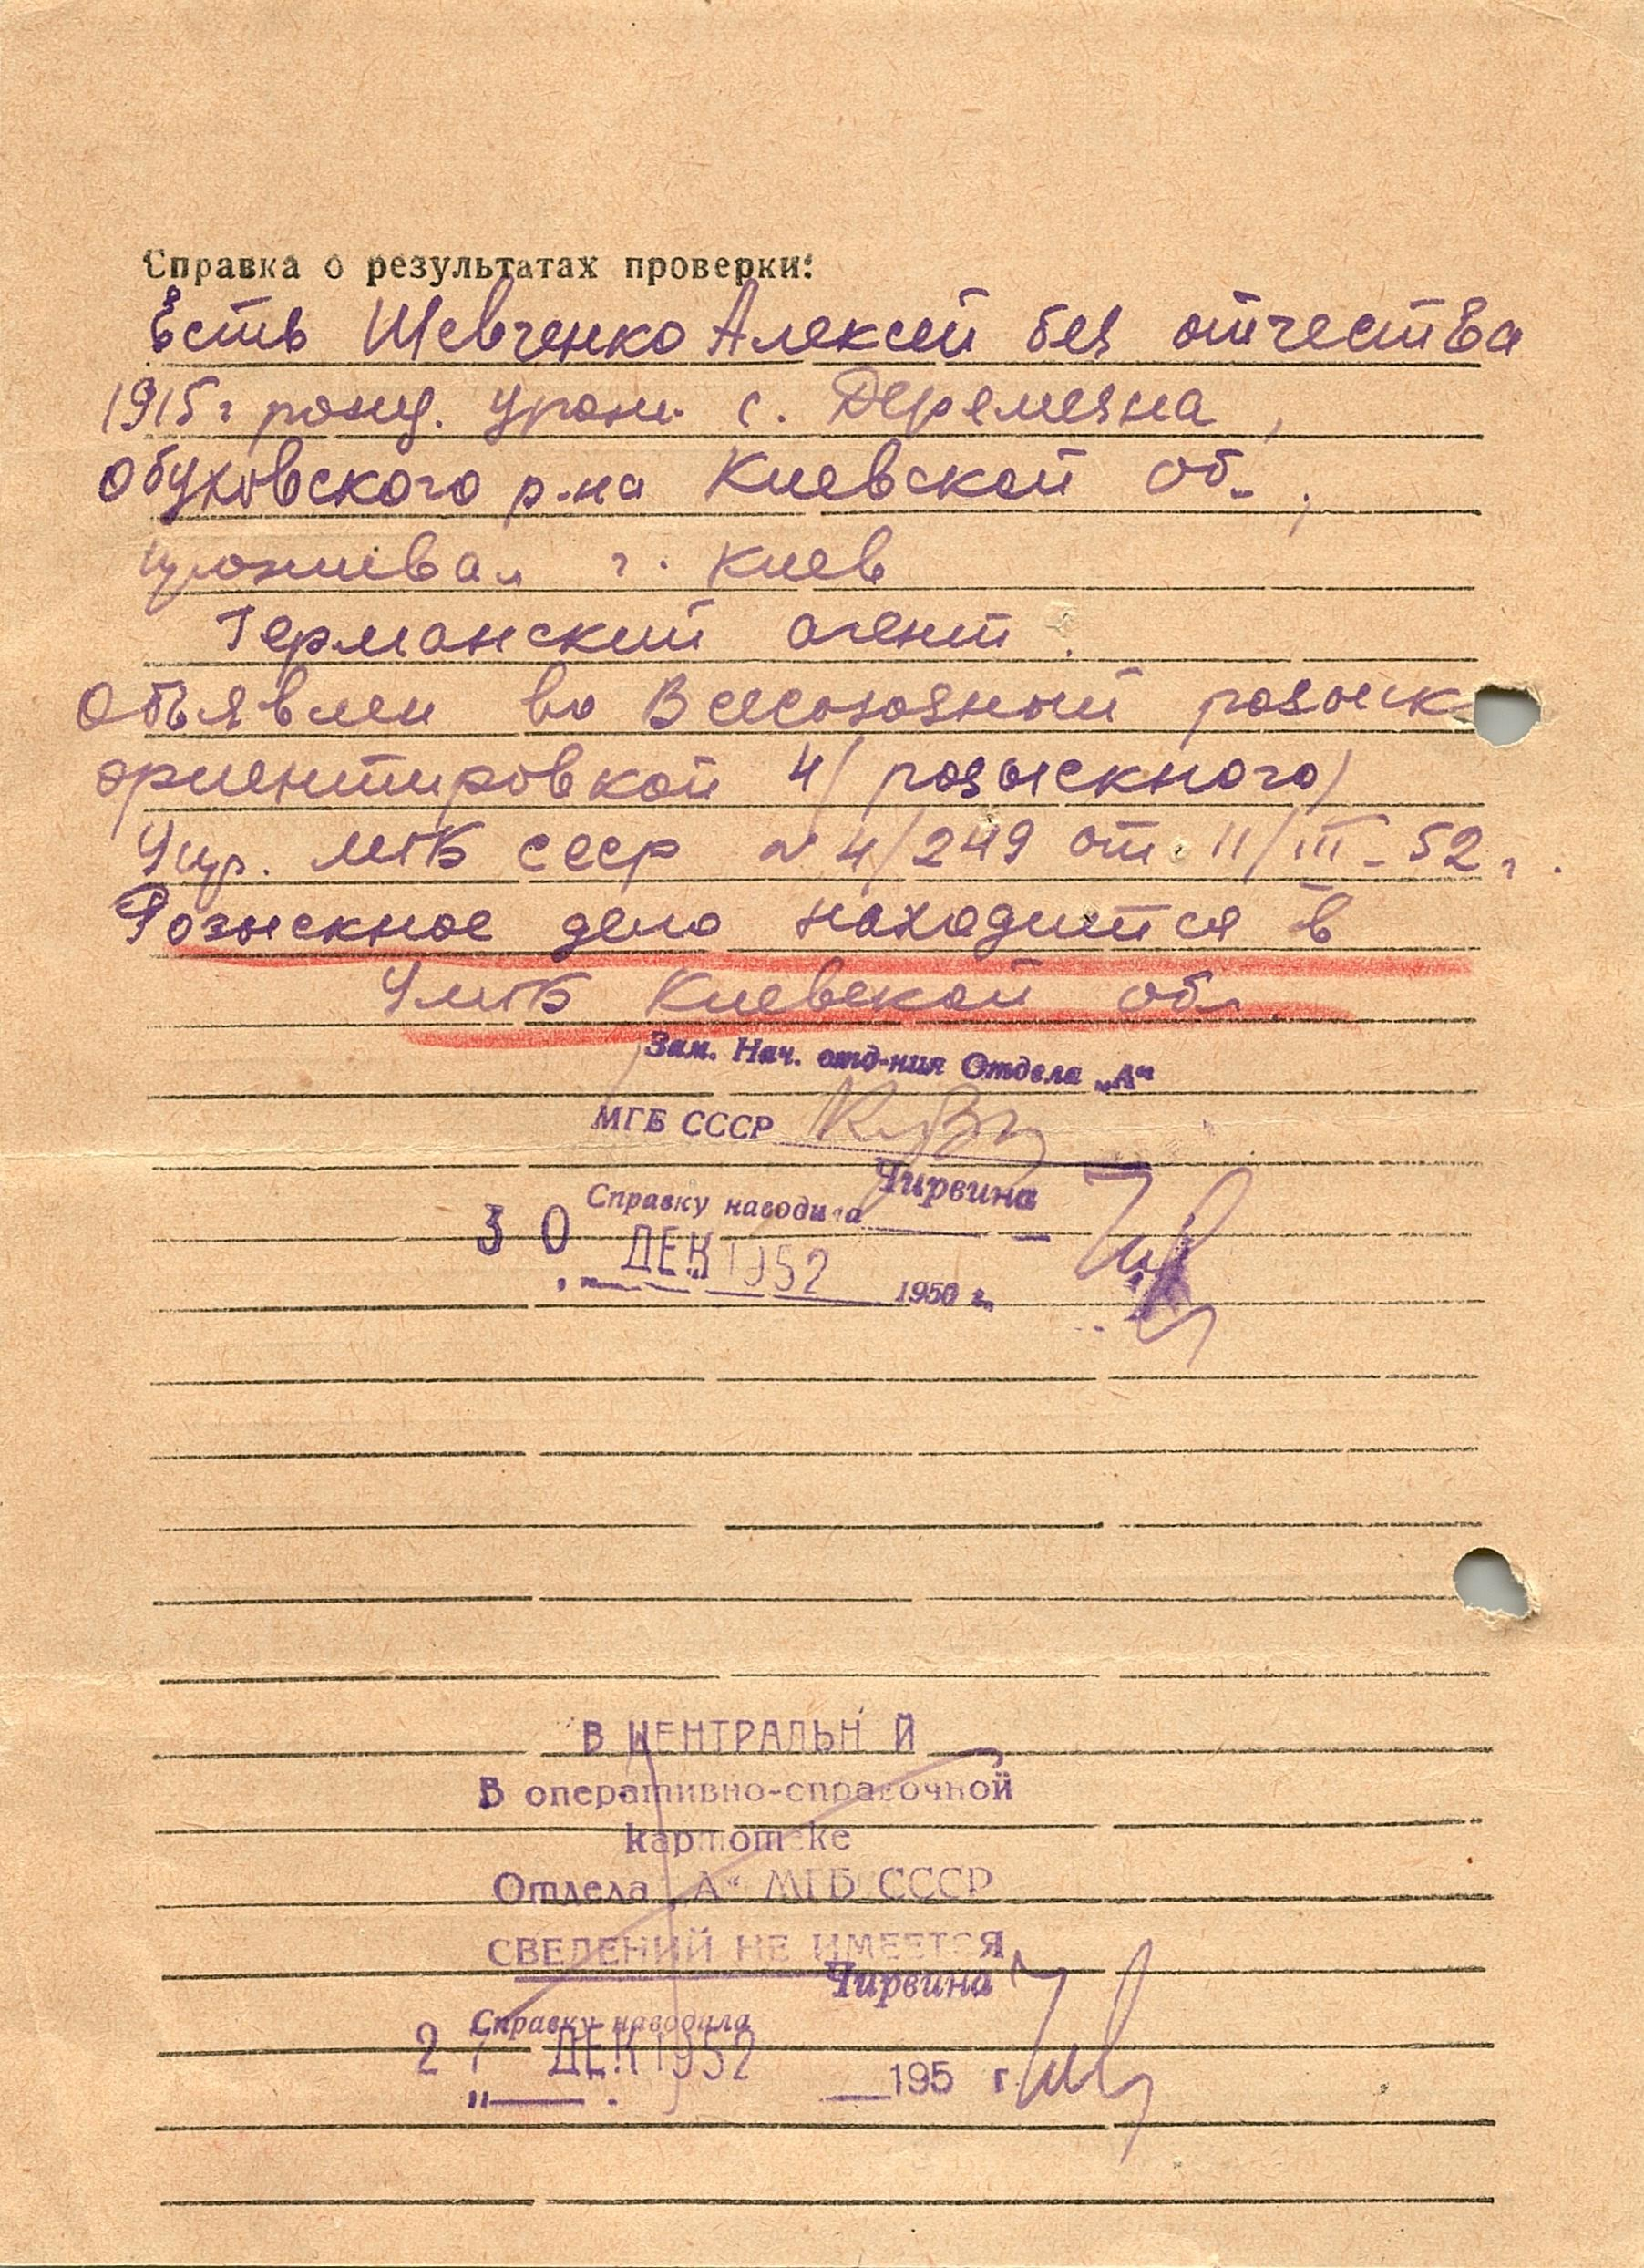 Справка о результатах проверки:
Есть Шевченко Алексей без отчества
1915 г рожд. урож. с. Деремезна,
Обуховского р-на Киевской об.,
прожива л г. Киев
Германский агент.
Объявлен во Всесоюзный розыск
ориентировкой 4/розыскного/
Упр. МГБ СССР № 4/249 от 11/III-52 г.
Розыскное дело находится в
УМГБ Киевской обл.
Зам. Нач. отд-ния Отдела „А“
МГБ СССР
Чирвина
Справку наводила
30 ДЕК 1952
1950 г.
В ЦЕНТРАЛЬН Й
В оперативно-справочной
картотеке
Отдела „А“ МГБ СССР
СВЕДЕНИЙ НЕ ИМЕЕТСЯ
Чирвина
Справку наводила
27 ДЕК 1952
195 г.